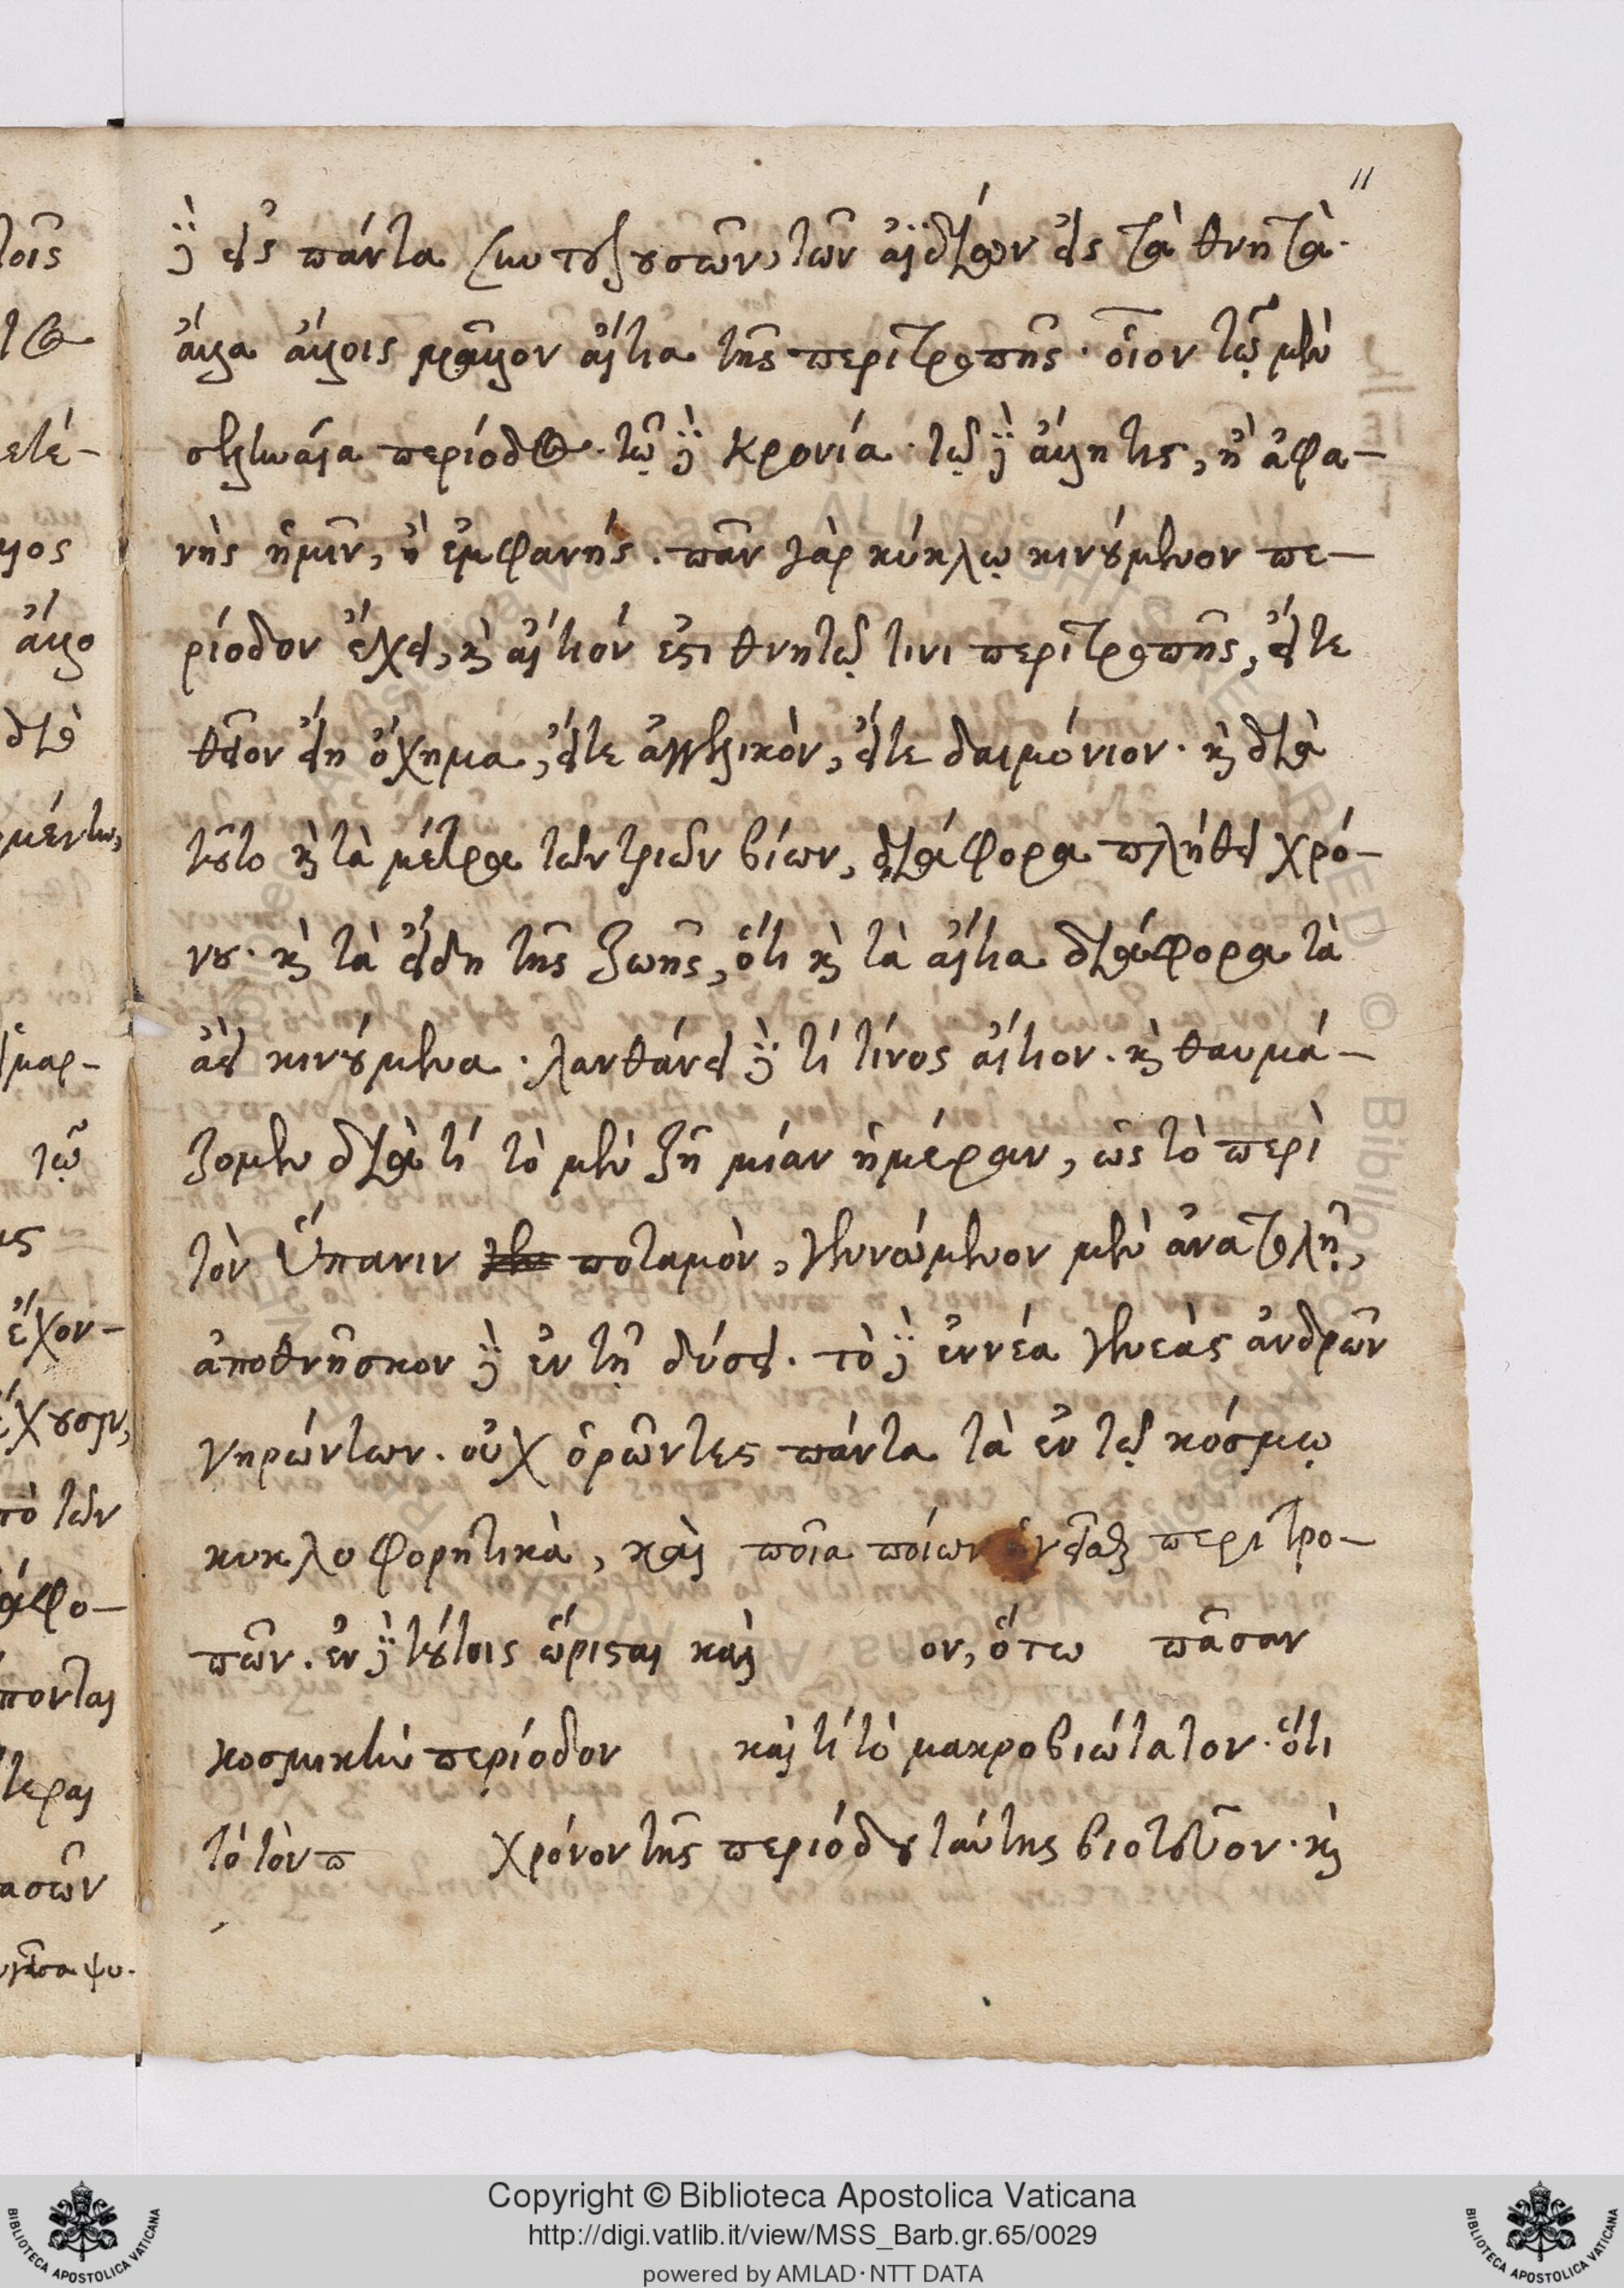 11
δὲ εἰς πάντα συντελουσῶν, τῶν ἀϊδίων εἰς τὰ θνητά·
ἄλλα ἄλλοις μᾶλλον αἴτια τῆς περιτροπῆς· οἷον τῷ μὲν
σεληναία περίοδος· τῷ δὲ κρονία· τῷ δὲ ἄλλη τις, ἢ ἀφα-
νὴς ἡμῖν, ἢ ἐμφανής. πᾶν γὰρ κύκλῳ κινούμενον πε-
ρίοδον ἔχει, καὶ αἴτιόν ἐστι θνητῷ τινι περιτροπῆς, εἴτε
θεῖον εἴη ὄχημα, εἴτε ἀγγελικὸν, εἴτε δαιμόνιον. καὶ διὰ
τοῦτο καὶ τὰ μέτρα τῶν τριῶν βίων, διάφορα πλήθει χρό-
νου· καὶ τὰ εἴδη τῆς ζωῆς, ὅτι καὶ τὰ αἴτια διάφορα τὰ
ἀεὶ κινούμενα. λανθάνει δὲ τί τίνος αἴτιον. καὶ θαυμά-
ζομεν διὰ τί τὸ μὲν ζῇ μίαν ἡμέραν, ὡς τὸ περὶ
τὸν Ὕπανιν ποταμὸν, γεννώμενον μὲν ἀνατολῇ,
ἀποθνῆσκον δὲ ἐν τῇ δύσει. τὸ δὲ ἐννέα γενεὰς ἀνδρῶν
γηρώντων. οὐχ ὁρῶντες πάντα τὰ ἐν τῷ κόσμῳ
κυκλοφορητικὰ, καὶ ποῖα ποίων περιτρο-
πῶν. ἐν δὲ τούτοις ὥρισται καὶ ον, ὅτω πᾶσαν
κοσμικὴν περίοδον καὶ τί τὸ μακροβιώτατον· ὅτι
τὸ τὸν π χρόνον τῆς περιόδου ταύτης βιοτεῦον. καὶ
Copyright © Biblioteca Apostolica Vaticana
http://digi.vatlib.it/view/MSS_Barb.gr.65/0029
powered by AMLAD·NTT DATA